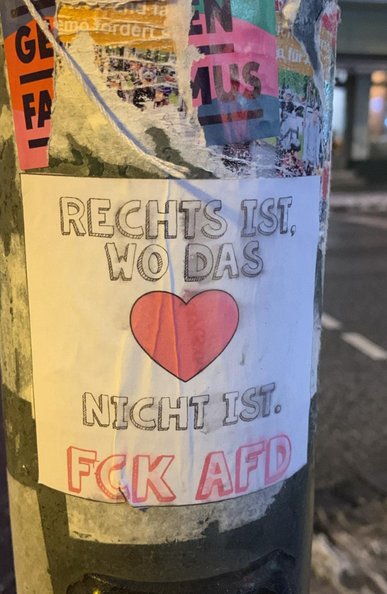 GE
FA
demo fordert
EN
MUS
RECHTS IST,
WO DAS
NICHT IST.
FCK AFD